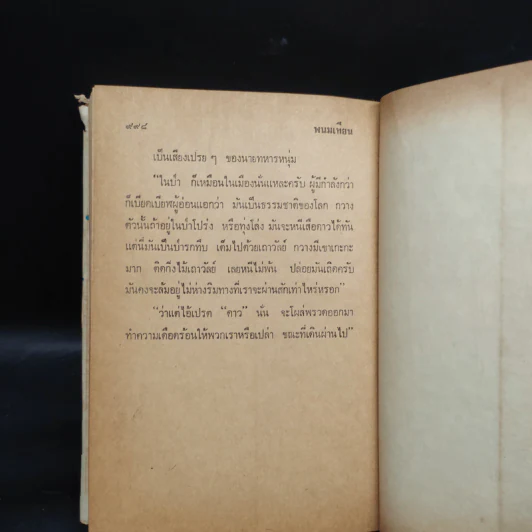 ๙๙๔ พนมเทียน
เป็นเสียงเปรย ๆ ของนายทหารหนุ่ม
"ในป่า ก็เหมือนในเมืองนั่นแหละครับ ผู้มีกำลังกว่า
ก็เบียดเบียฬผู้อ่อนแอกว่า มันเป็นธรรมชาติของโลก กวาง
ตัวนั้นถ้าอยู่ในป่าโปร่ง หรือทุ่งโล่ง มันจะหนีเสือดาวได้ทัน
แต่นี่มันเป็นป่ารกทึบ เต็มไปด้วยเถาวัลย์ กวางมีเขาเกะกะ
มาก ติดกิ่งไม้เถาวัลย์ เลยหนีไม่พ้น ปล่อยมันเถิดครับ
มันคงจะล้มอยู่ไม่ห่างริมทางที่เราจะผ่านสักเท่าไหร่หรอก"
"ว่าแต่ไอ้เปรต "ดาว" นั่น จะโผล่พรวดออกมา
ทำความเดือดร้อนให้พวกเราหรือเปล่า ขณะที่เดินผ่านไป"